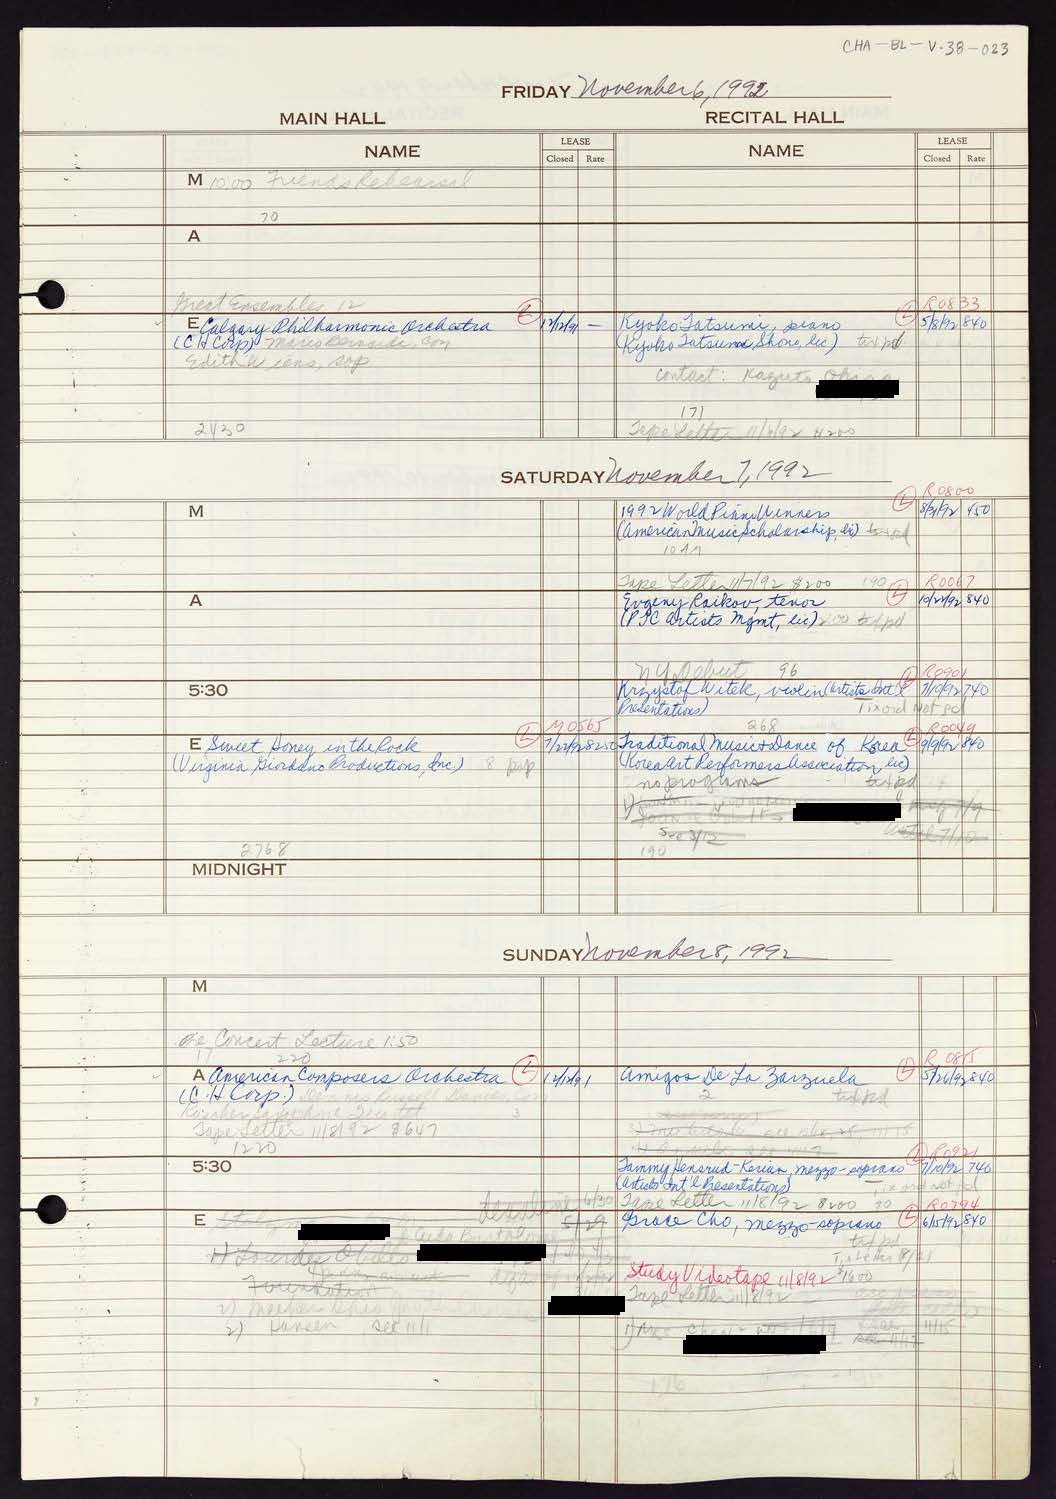 CHA-BL-V-38-023
FRIDAY November 6, 1992
MAIN HALL
RECITAL HALL
NAME
LEASE
Closed Rate
NAME
LEASE
Closed Rate
M 10:00 Friends Rehearsal
70
A
Great Ensembles 12
E Calgary Philharmonic Orchestra 12/12/91 —
(CH Corp) Mario Bernardi, con
Edith Wiens, sop
2430
R0833
Kyoko Tatsumi, piano L 5/8/92 840
(Kyoko Tatsumi Shono, lic) txt pd
contact: Kazuto
171
Tape Letter 11/6/92 #200
SATURDAY November 7, 1992
M
R0800
1992 World Piano Winners L 8/31/92 450
(American Music Scholarship, lic) txt pd
10 AM
Tape Letter 11/7/92 $200 190
A
R0067
Evgeny Raikov, tenor L 10/22/92 840
(PTC Artists Mgmt, lic) 2:00 txt pd
NY Debut 96
5:30
R0901
Krzysztof Witek, violin (Artists Int'l L 7/10/92 740
Presentations) Tix ord Not pd
268
M0565
E Sweet Honey in the Rock L 7/22/92 8250
(Virginia Giordano Productions, Inc) 8 pop
2768
R0049
Traditional Music & Dance of Korea L 9/9/92 840
(Korea Art Performers Association, lic)
no programs txt pd
See 3/12
190
MIDNIGHT
SUNDAY November 8, 1992
M
Pre Concert Lecture 1:50
17 220
A American Composers Orchestra L 12/12/91
(C.H Corp.) Dennis Russell Davies, Con
3
Tape Letter 11/8/92 $647
1220
R0815
Amigos De La Zarzuela L 5/26/92 840
2 txt pd
5:30
R0921
Tammy Hensrud-Kerian, mezzo-soprano L 7/10/92 740
(Artists Int'l Presentations) Tix ord not pd
Tape Letter 11/8/92 $200 90
E
deadline 6/30
5/29
1) Lourdes
Foundation
2)
2) Hansen, see 11/1
R0794
Grace Cho, mezzo-soprano L 6/15/92 840
txt pd
Study Videotape 11/8/92 $1600
Tape Letter 11/8/92
11/15
11/17